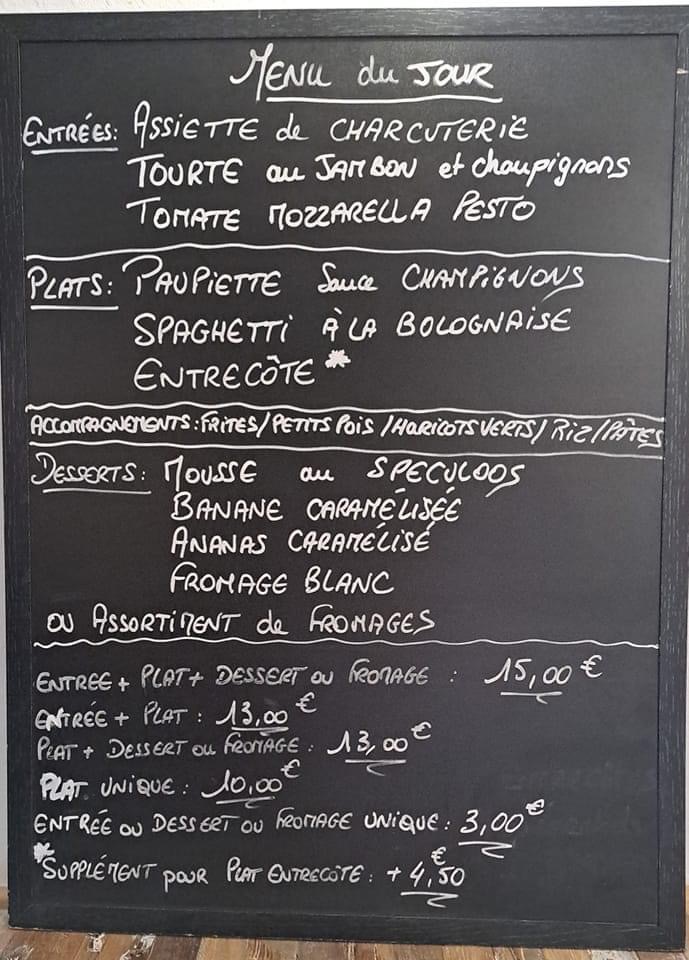 MENU du JOUR
ENTRÉES: ASSIETTE de CHARCUTERIE
TOURTE au JAMBON et choupignons
TOMATE MOZZARELLA PESTO
PLATS: PAUPIETTE Sauce CHAMPIGNONS
SPAGHETTI À LA BOLOGNAISE
ENTRECÔTE *
ACCOMPAGNEMENTS: FRITES/PETITS POIS/HARICOTS VERTS/RIZ/PÂTES
DESSERTS: MOUSSE au SPECULOOS
BANANE CARAMÉLISÉE
ANANAS CARAMÉLISÉ
FROMAGE BLANC
OU ASSORTIMENT de FROMAGES
ENTREE + PLAT + DESSERT OU FROMAGE : 15,00 €
ENTRÉE + PLAT : 13,00 €
PLAT + DESSERT OU FROMAGE : 13,00 €
PLAT UNIQUE : 10,00 €
ENTRÉE OU DESSERT OU FROMAGE UNIQUE : 3,00 €
* SUPPLÉMENT pour PLAT ENTRECOTE : + 4,50 €